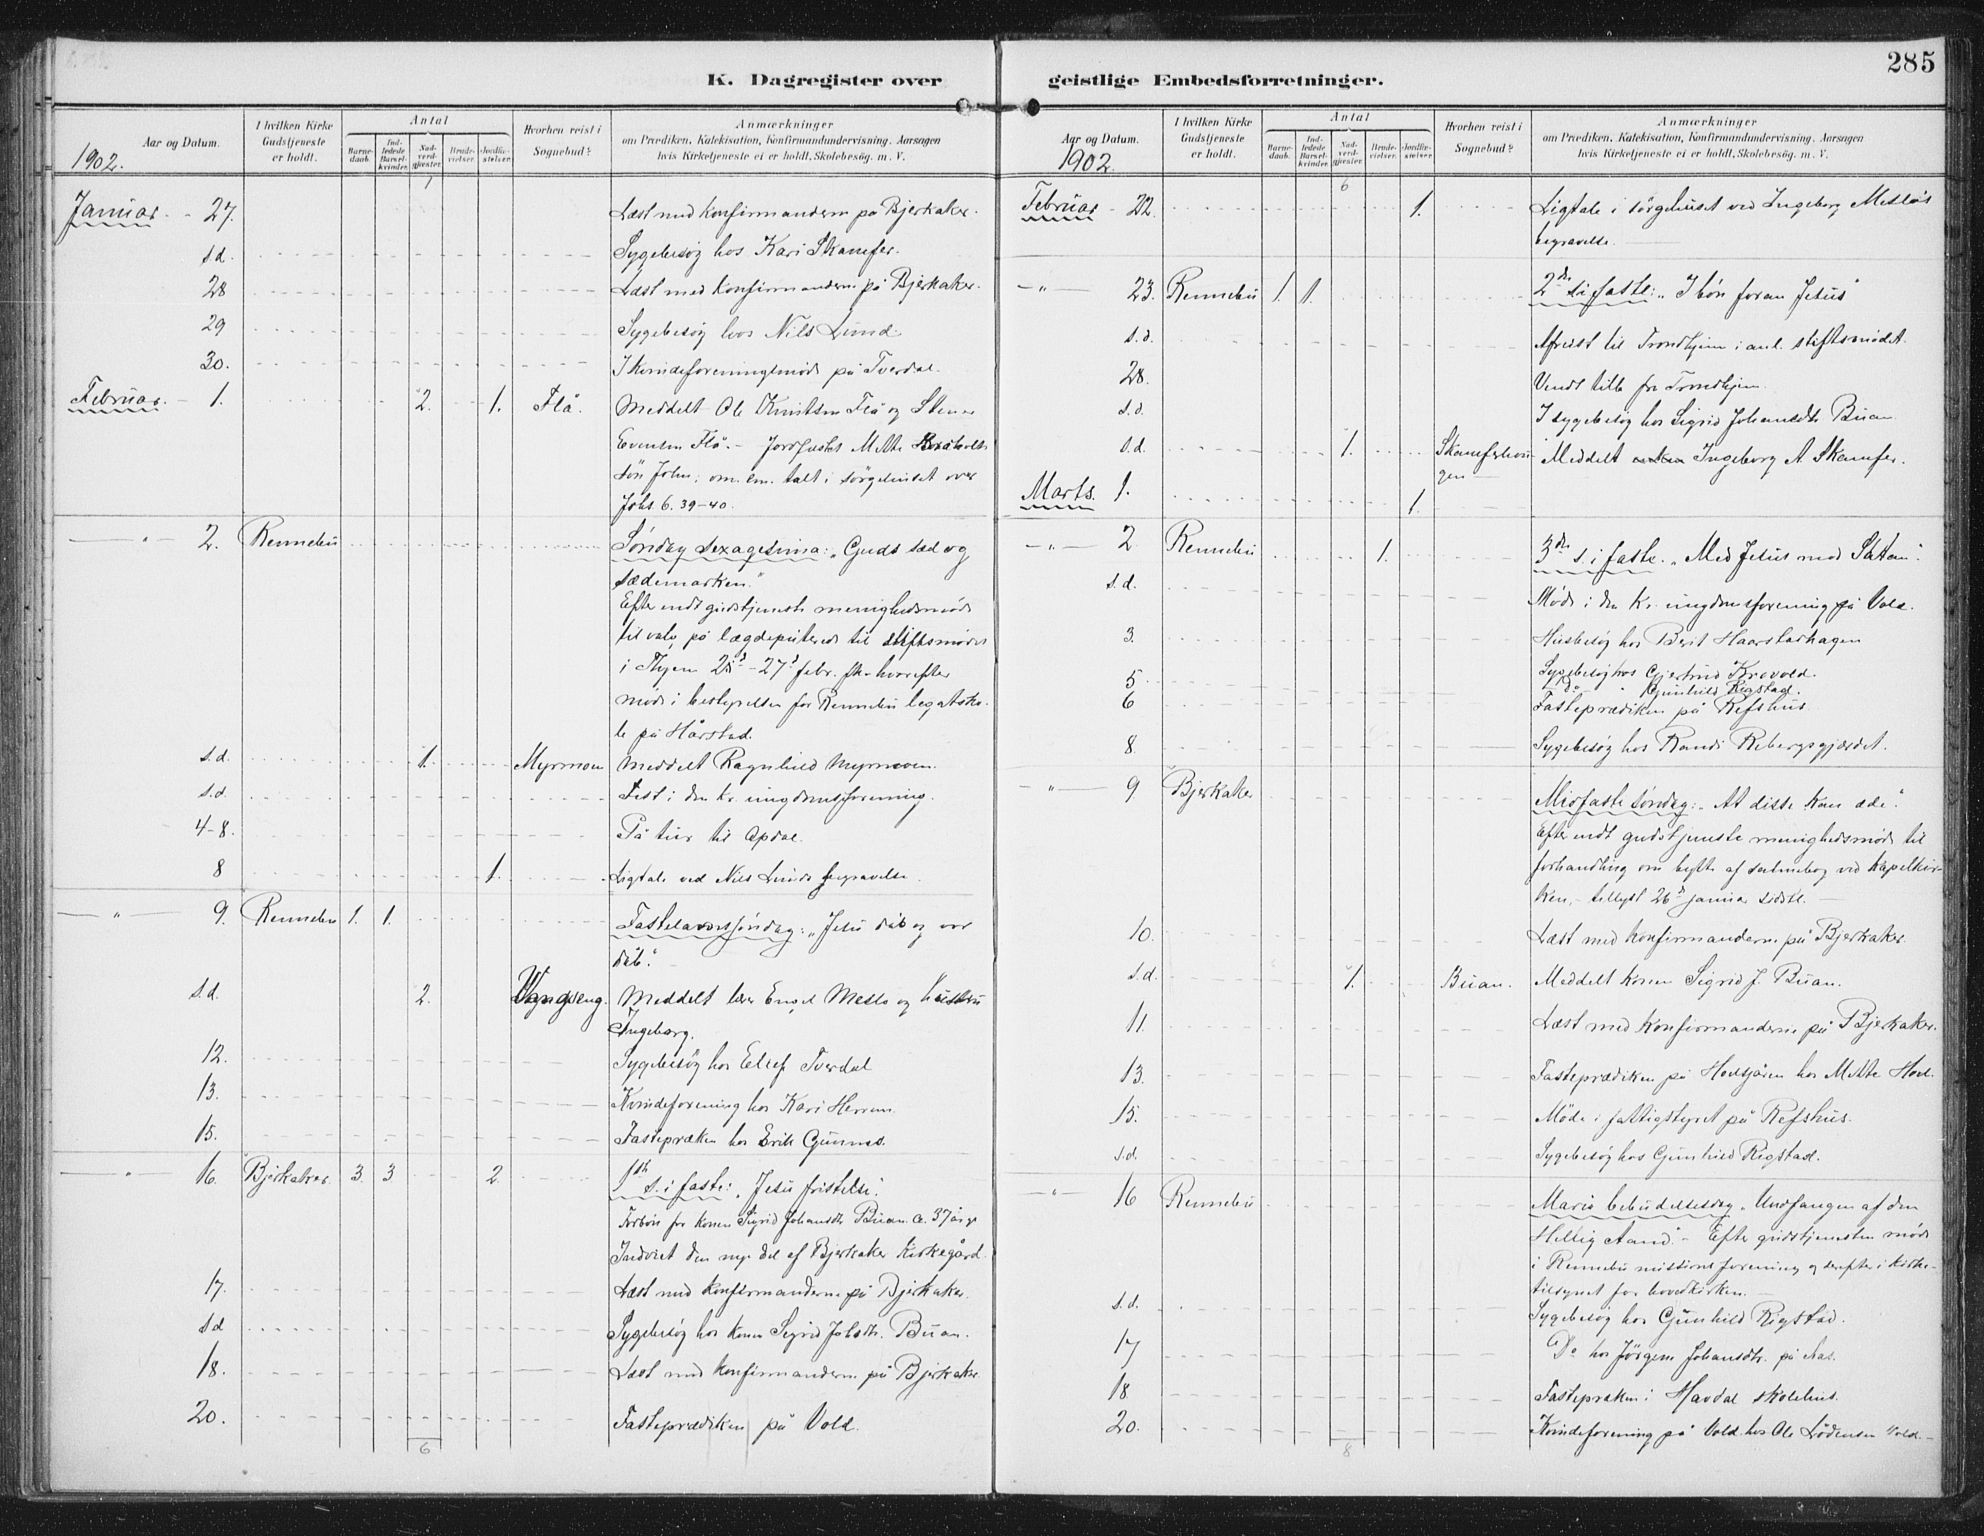 285
K. Dagregister over
Aar og Datum.
I hvilken Kirke Gudstjeneste er holdt.
Antal
Barne-daab.
Ind-ledede Barsel-kvinder.
Nad-verd-gjester.
Brude-vielser.
Jordfæ-stelser.
Hvorhen reist i Sognebud?
Anmærkninger
om Prædiken, Katekisation, Konfirmandundervisning, Aarsagen
hvis Kirketjeneste ei er holdt, Skolebesøg. m. V.
1902.
1
Januar - 27. Læst med konfirmanderne på Bjerkaker.
s.d. Sygebesøg hos Kari Skamfer.
28 Læst med konfirmanderne på Bjerkaker.
29 Sygebesøg hos Nils Lund
30. I kvindeforeningsmøde på Tverdal.
Februar. - 1. 2. 1. Flå. Meddelt Ole Knutsen Flå og Stener
Evensen Flå. - Jordfæstet Mette
søn John; om em. talt i sørgehuset over
Johs 6. 39-40.
— " — 2. Rennebu Søndag sexagesima: „Guds sæd og
sædemarken."
Efter endt gudstjeneste menighedsmøde
til valg på lægdeputerede til stiftsmødet
i Thjem 25de - 27de febr. hvorefter
møde i bestyrelsen for Rennebu legatsko-
le på Hårstad.
s.d. 1. Myrmoen Meddelt Ragnhild Myrmoen.
s.d. Fest i den kr. ungdomsforening.
4-8. På tur til Opdal.
8 1. Ligtale ved Nils Lunds begravelse.
— " — 9. Rennebu 1. 1. Fastelavnssøndag: „Jesu dåb og vor
dåb."
s.d. 2. Vangseng. Meddelt lærer Engel Meslo og hustru
Ingeborg.
12. Sygebesøg hos Ellef Tverdal
13. Kvindeforening hos Kari Herrem.
15. Fastepræken hos Erik Gunnes.
— " — 16. Bjerkaker. 3. 3 2 1ste s. i faste: „Jesu fristelse."
Forbøn for konen Sigrid Johansdtr Buan. c. 37 år gl
Indviet den nye del af Bjerkaker kirkegård.
17. Læst med konfirmanderne på Bjerkaker.
s.d Sygebesøg hos konen Sigrid Johsdtr. Buan.
18. Læst med konfirmanderne på Bjerkaker
20. Fasteprædiken på Vold.
6
geistlige Embedsforretninger.
Aar og Datum.
I hvilken Kirke Gudstjeneste er holdt.
Antal
Barne-daab.
Ind-ledede Barsel-kvinder.
Nad-verd-gjester.
Brude-vielser.
Jordfæ-stelser.
Hvorhen reist i Sognebud?
Anmærkninger
om Prædiken, Katekisation, Konfirmandundervisning, Aarsagen
hvis Kirketjeneste ei er holdt, Skolebesøg. m. V.
1902.
6
Februar - 22. 1. Ligtale i sørgehuset ved Ingeborg Mesløs
begravelse.
— " — 23. Rennebu 1. 1. 2den s. i faste: „I bøn foran Jesus"
s.d. Afreist til Trondhjem i anl. stiftsmødet.
28. Vendt tilb. fra Trondhjem.
s.d. I sygebesøg hos Sigrid Johansdtr Buan
s.d. 1. Skamferhou-
gen Meddelt Ingeborg A. Skamfer.
Marts. 1. 1.
— " — 2 Rennebu 1. 3die s. i faste. „Med Jesus mod Satan".
s.d. Møde i den kr. ungdomsforening på Vold.
3. Husbesøg hos Berit Haarstadhagen
5. Sygebesøg hos Gjertrud Krovold.
do " Gunhild Rigstad.
6 Fasteprædiken på Refshus.
8. Sygebesøg hos Randi Rebergsgjærdet.
— " — 9 Bjerkaker Midfaste søndag: „At disse kan æde".
Efter endt gudstjeneste menighedsmøde til
forhandling om bytte af salmebog ved kapelkir-
ken, - tillyst 26de januar sidstl. —
10. Læst med konfirmanderne på Bjerkaker.
s.d. 1. Buan. Meddelt konen Sigrid J. Buan.
11. Læst med konfirmanderne på Bjerkaker.
13. Fasteprædiken på Hovsjøren hos Mette Hovd.
15. Møde i fattigstyret på Refshus.
s.d. Sygebesøg hos Gunhild Rigstad.
— " — 16 Rennebu Mariæ bebudelsesdag. „Undfangen af den
Hellig Aand". - Efter gudstjenesten møde
i Rennebu missionsforening og derefter i kirke-
tilsynet for hovedkirken. —
s.d. Sygebesøg hos Gunhild Rigstad.
17 Do hos Jörgine Johansdtr. på Aas.
18 Fastepræken i Havdal skolehus.
20. Kvindeforening på Vold hos Ole Lødensen Vold.
8